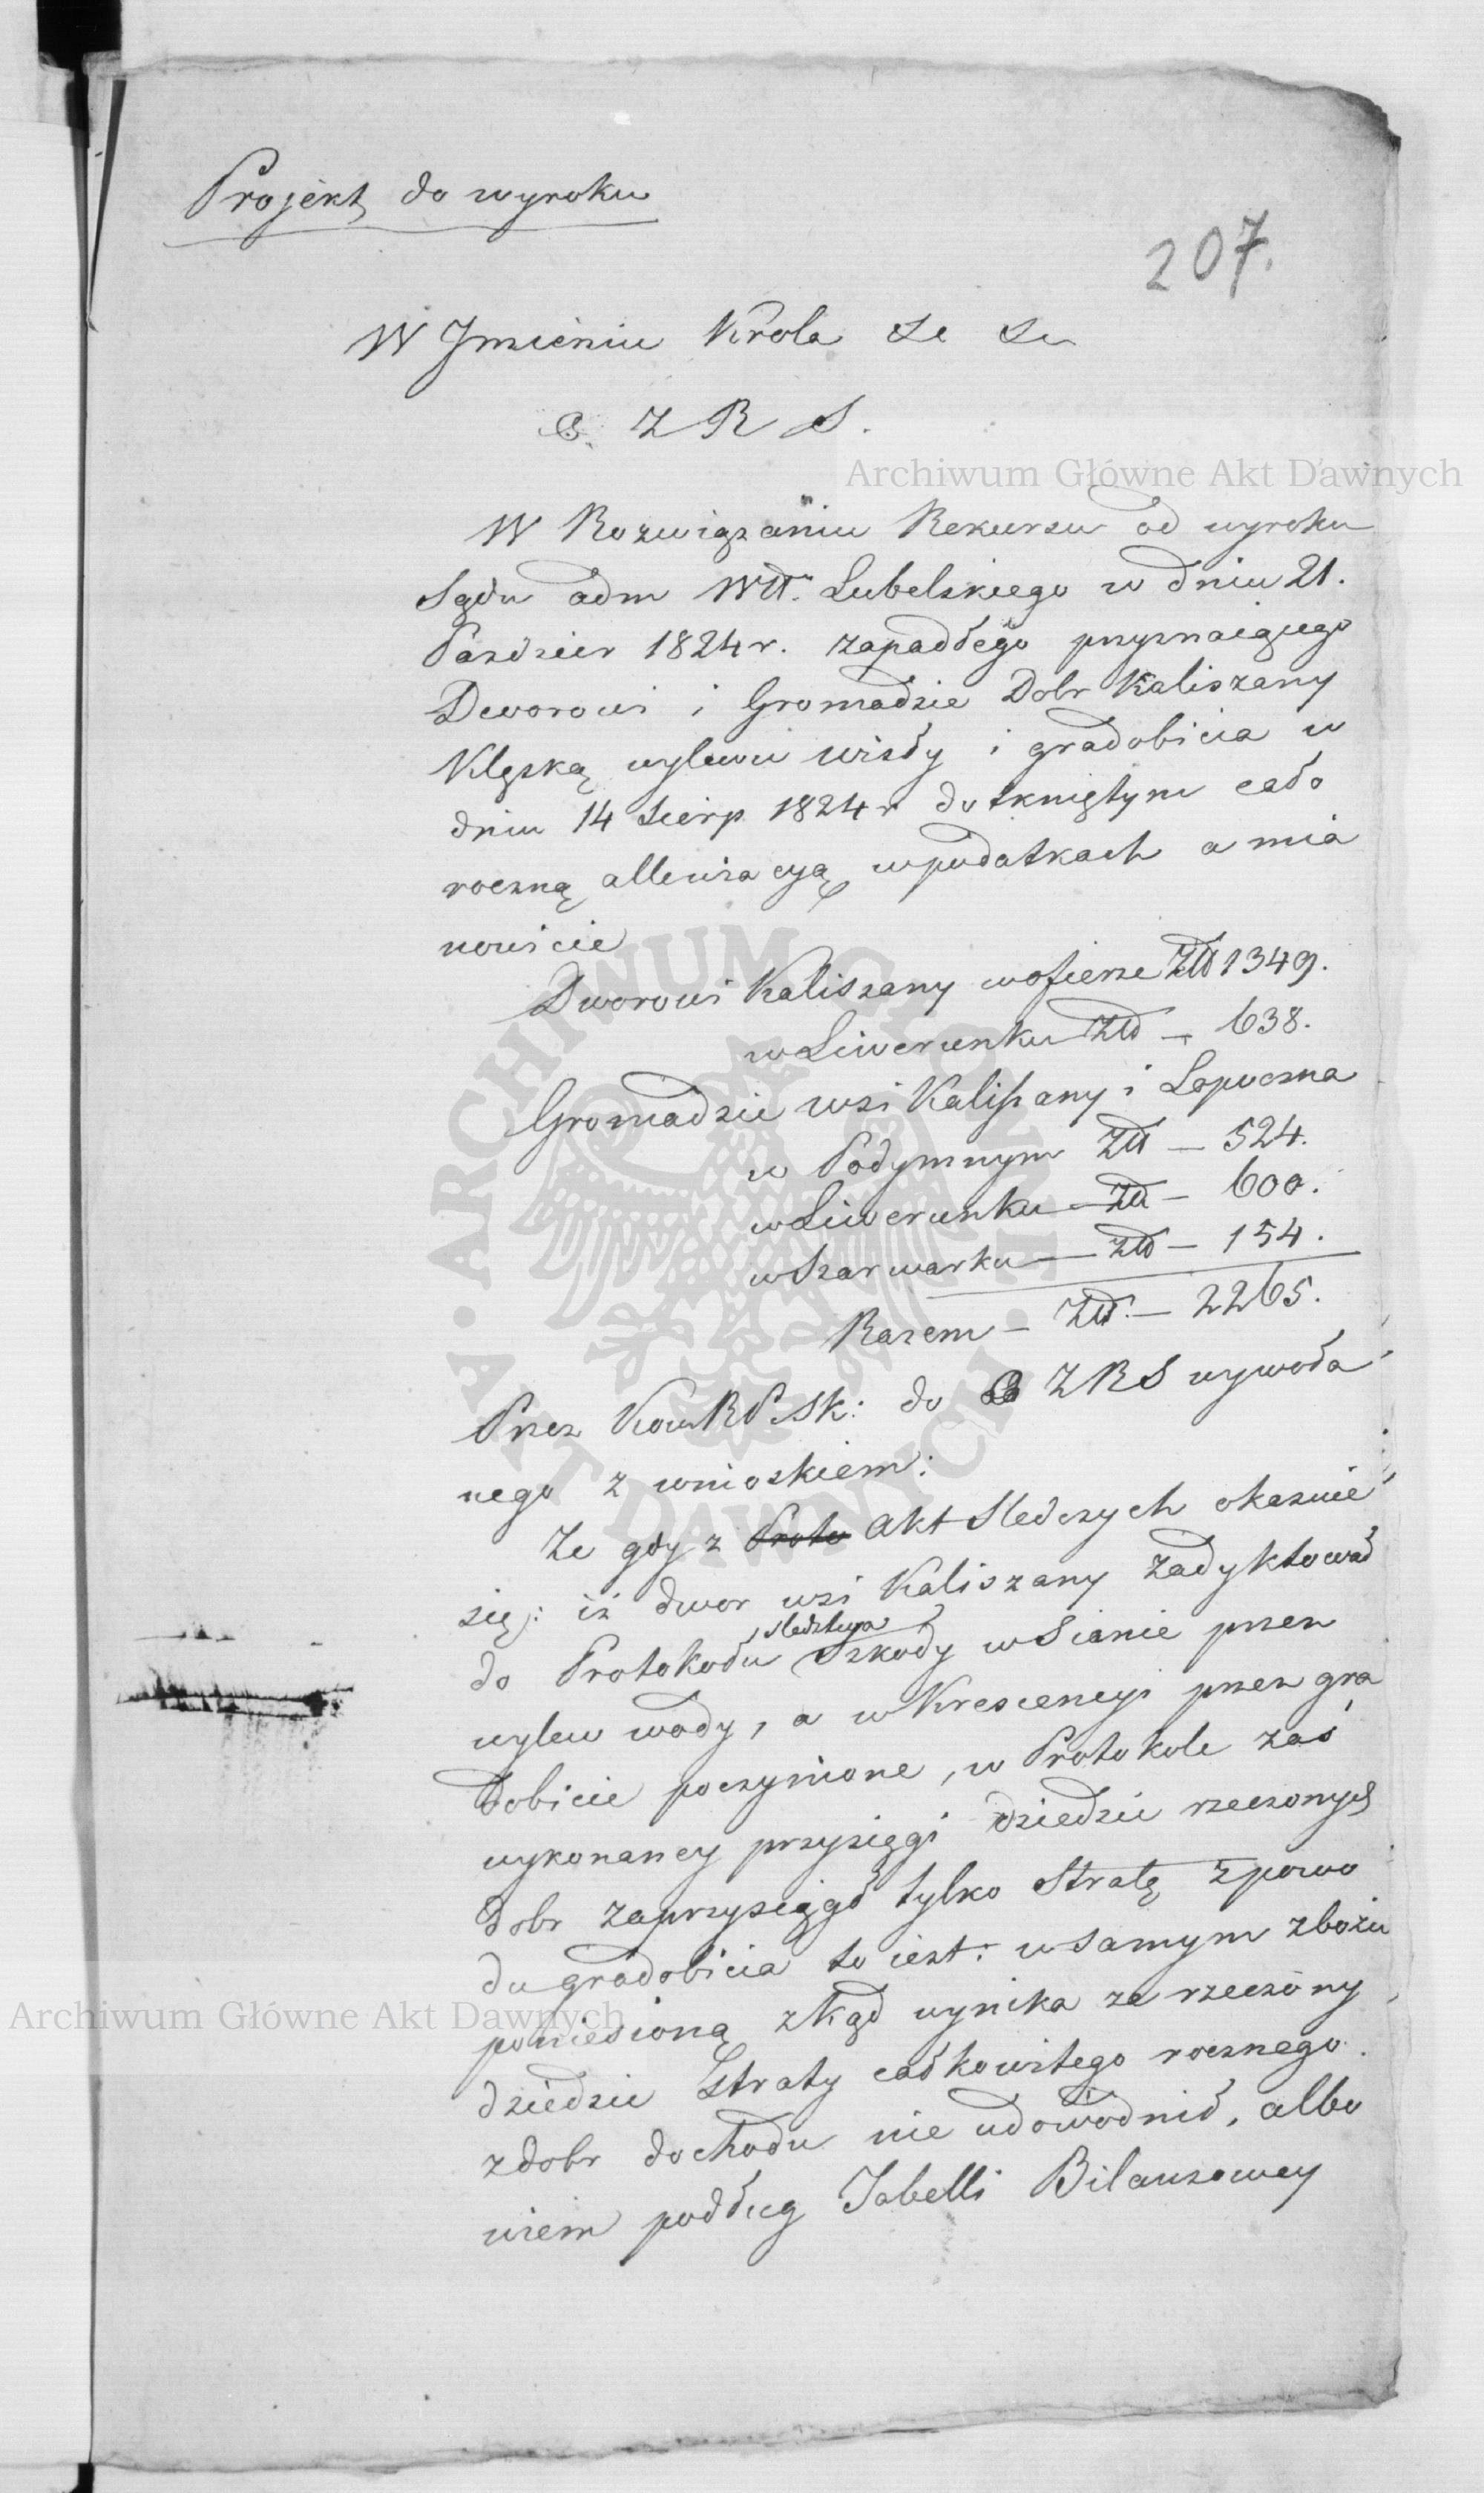 Projekt do wyroku
207.
W Jmieniu Krola &c &c
Z R S.
Archiwum Główne Akt Dawnych
W Rozwiązaniu Rekursu od wyroku
Sądu adm Wdt. Lubelskiego w dniu 21.
Pazdzier 1824 r. zapadłego przyznaiącego
Dworowi i Gromadzie Dobr Kaliszany
Klęską wylewu wisły i gradobicia w
dniu 14 Sierp 1824 r dotkniętym cało
roczną allewiacyą w podatkach a mia
nowicie
Dworowi Kaliszany w ofierze Złł 1349.
w Liwerunku Złł — 638.
Gromadzie wsi Kaliszany i Lopoczna
w Podymnym Złł — 524.
w Liwerunku — Złł — 600.
w Szarwarku — Złł — 154.
Razem — Złł. — 2265.
Przez Kom RPSk: do ZRS wywoła
nego z wnioskiem:
Ze gdy z Proto akt Sledczych okazuie
się: iż dwor wsi Kaliszany zadyktował
do Protokołu sledztwa Szkody w Sianie przez
wylew wody, a w Krescencyi przez gra
dobicie poczynione, w Protokole zaś
wykonaney przysięgi dziedzic rzeczonych
dobr zaprzysiągł tylko Stratę z powo
du gradobicia to iest: w samym zbożu
poniesioną zkąd wynika ze rzeczony
Archiwum Główne Akt Dawnych
dziedzic Straty całkowitego rocznego
z dobr dochodu nie udowodnił, albo
wiem podług Tabelli Bilansowey
ARCHIWUM GŁÓWNE AKT DAWNYCH